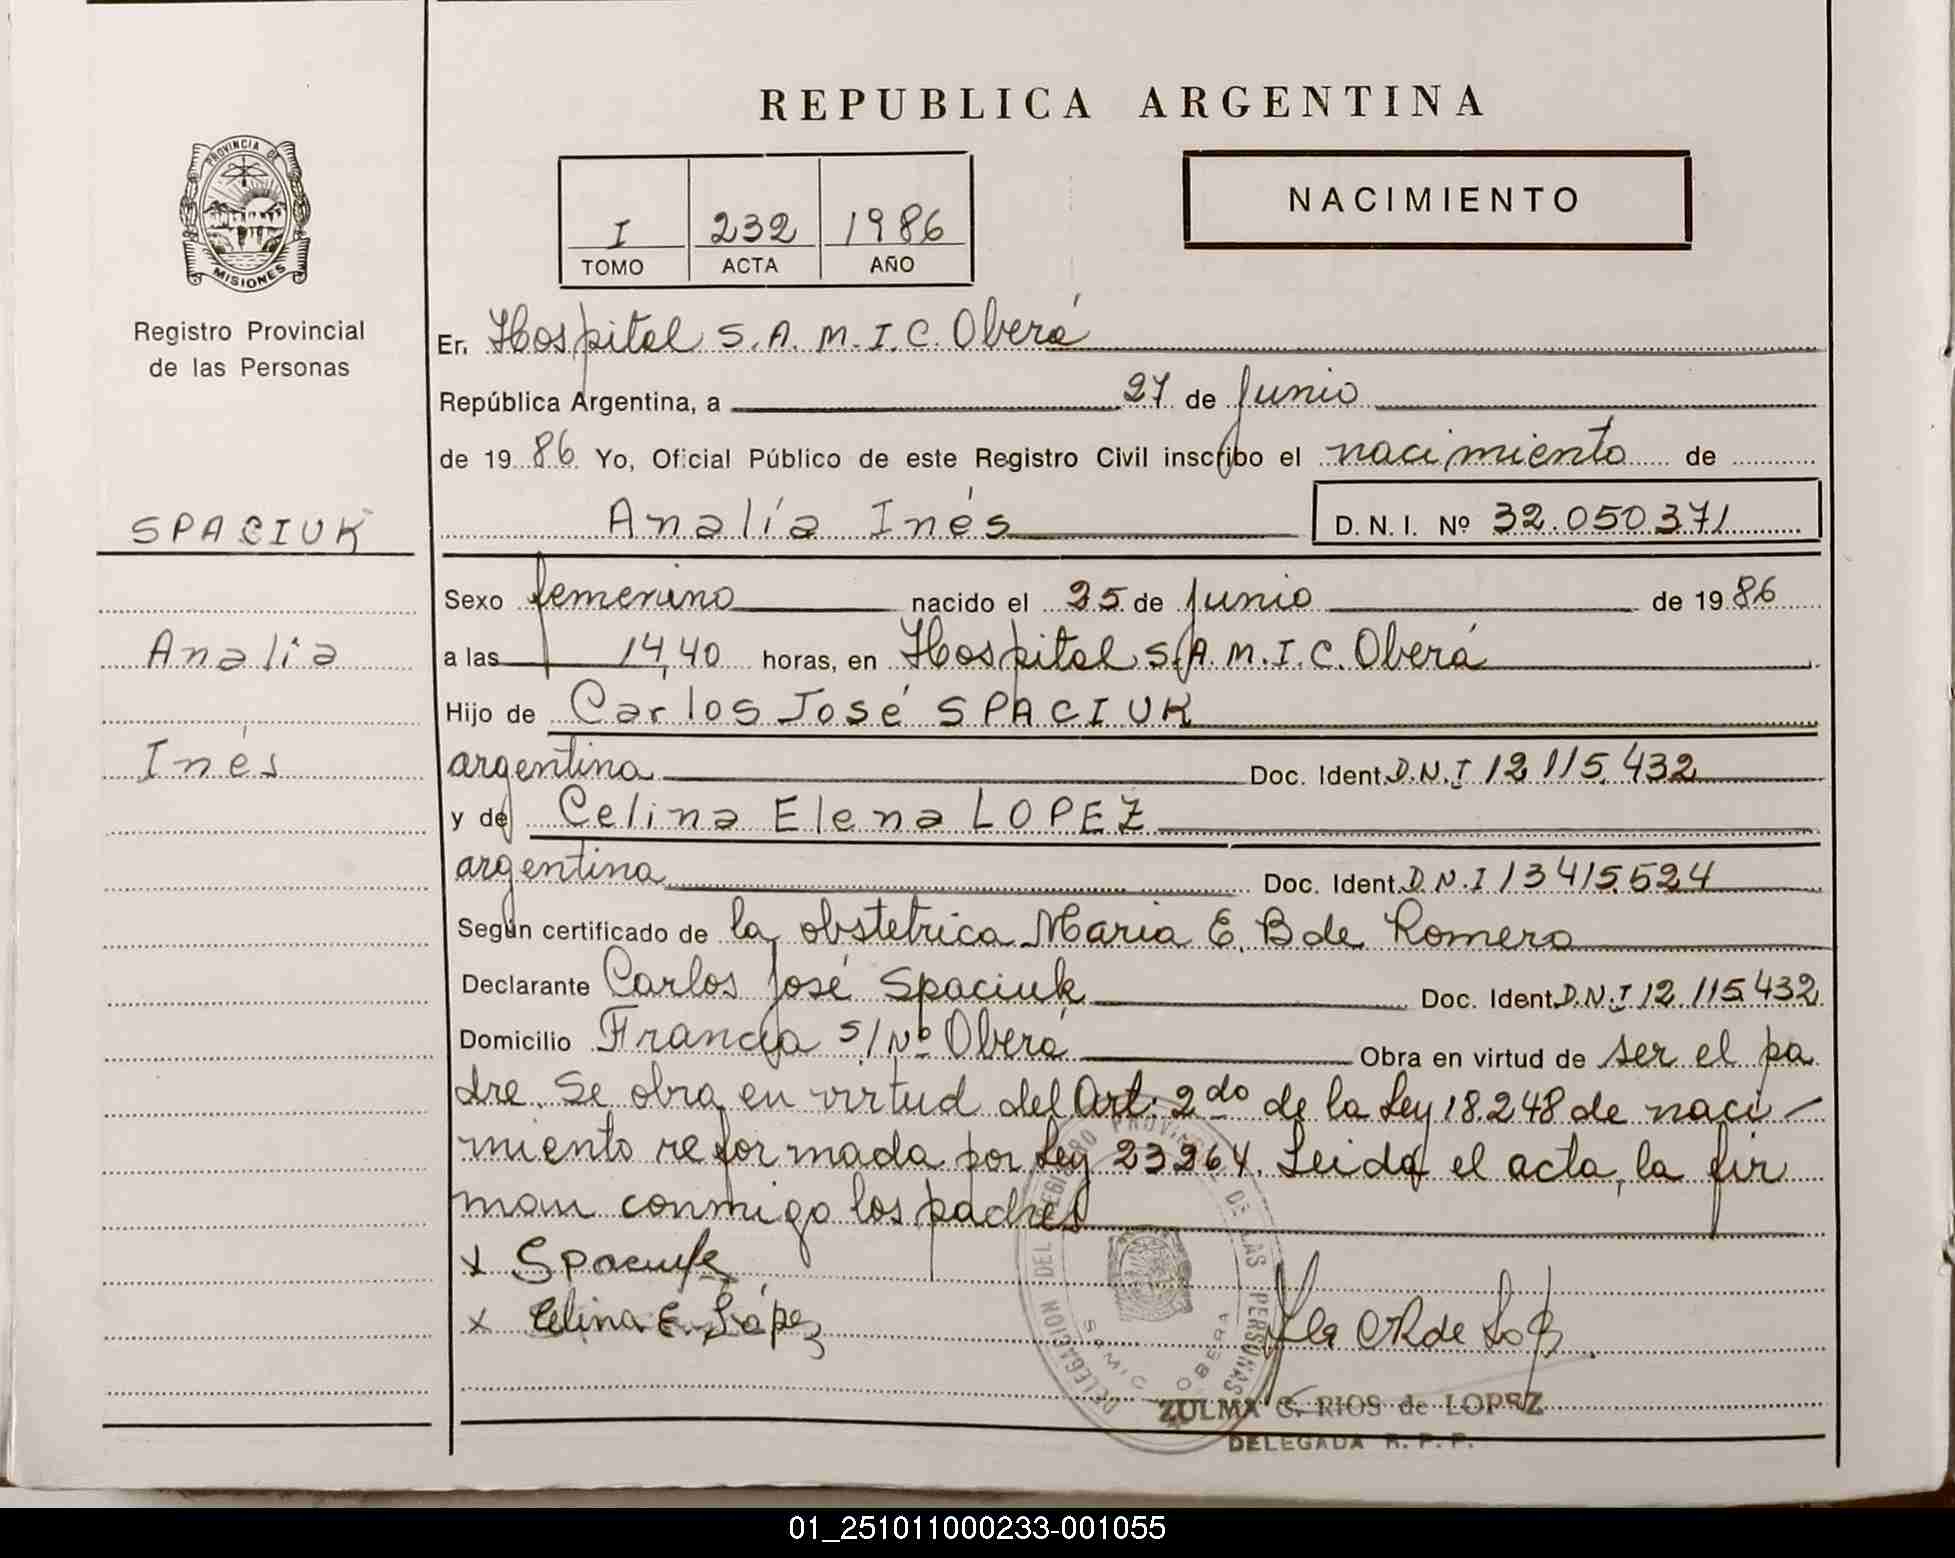 REPUBLICA ARGENTINA
PROVINCIA DE
MISIONES
Registro Provincial
de las Personas
I 232 1986
TOMO ACTA AÑO
NACIMIENTO
En Hospital S.A.M.I.C. Oberá
República Argentina, a 27 de Junio
de 1986 Yo, Oficial Público de este Registro Civil inscribo el nacimiento de
SPACIUK
Analía Inés D.N.I. Nº 32.050.371
Sexo femenino nacido el 25 de junio de 1986
Analía
a las 14,40 horas, en Hospital S.A.M.I.C. Oberá
Hijo de Carlos José SPACIUK
Inés
argentina Doc. Ident. D.N.I 12.115.432
y de Celina Elena LOPEZ
argentina Doc. Ident. D.N.I 13415.524
Según certificado de la obstetrica Maria E. B de Romero
Declarante Carlos José Spaciuk Doc. Ident. D.N.I 12.115.432
Domicilio Francia s/Nº Oberá Obra en virtud de ser el pa
dre. Se obra en virtud del Art. 2do de la Ley 18.248 de naci-
miento reformada por Ley 23264. Leida el acta, la fir
man conmigo los padres
x Spaciuk
x Celina E. López
DELEGACION DEL REGISTRO PROVINCIAL DE LAS PERSONAS
SAMIC OBERA
ZULMA C. RIOS de LOPEZ
DELEGADA R. P. P.
01_251011000233-001055